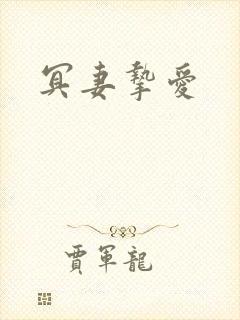 冥妻挚愛
賈軍龍